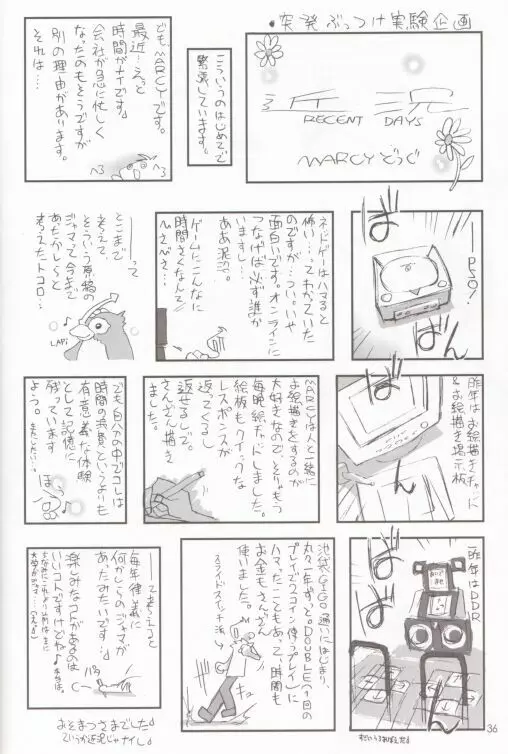 ・突発ぶっつけ実験企画
近況
RECENT DAYS
MARCYどうぐ
こういうのはじめてで
緊張しています。
ども MARCYです。
最近…えっと
時間がナイです。
会社が急に忙しく
なったのもそうですが
別の理由があります。
それは…
――PSO!
ばばん
ネットゲーはハマると
怖い…ってわかっていた
のですが…つい。いや
面白いです。オンラインに
つなげば必ず誰か
いますし…
ああ泥沼。
ゲームにこんなに
時間さくなんて
――って
とこまで
考えて
そういう原稿の
ジャマで今まで
あたかしらと
考えたトコロ…
LAPi
昨年はお絵描きチャット
&お絵描き掲示板
ばん
MARCYは人と一緒に
お絵描きをするのが
大好きなので、そりゃもう
毎晩絵チャットしました。
絵板もクイックな
レスポンスが
返ってくるし
返せるしで。
さんざん描き
ました。
でも自ハァの中でコレは
時間の浪費というよりも
有意義な体験
として記憶に
残っています
よう。
またしたいー。
ほう
昨年はDDR
ばばん
池袋GIGO通いにはじまり、
丸々1年ずっと。DOUBLE(1回の
プレイで2コイン使うプレイ)に
ハマったこともあって時間も
お金もさんざん
使いました。
スライドスイッチ派
キュ
――って考えると
毎年律義に
何かしらのジャマが
あったみたいです;
楽しみなコトがあるのは
いいコトですけどね♪
おそまつさまでした♪
ていうか近況じゃナイし♪
36